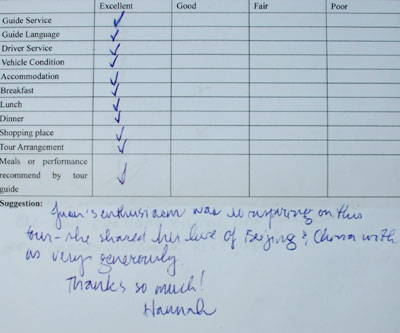 Excellent Good Fair Poor
Guide Service ✓
Guide Language ✓
Driver Service ✓
Vehicle Condition ✓
Accommodation ✓
Breakfast ✓
Lunch ✓
Dinner ✓
Shopping place ✓
Tour Arrangement ✓
Meals or performance
recommend by tour ✓
guide
Suggestion: enthusiasm was inspiring on this
tour - she shared her love of Beijing & China with
us very generously.
Thanks so much!
Hannah